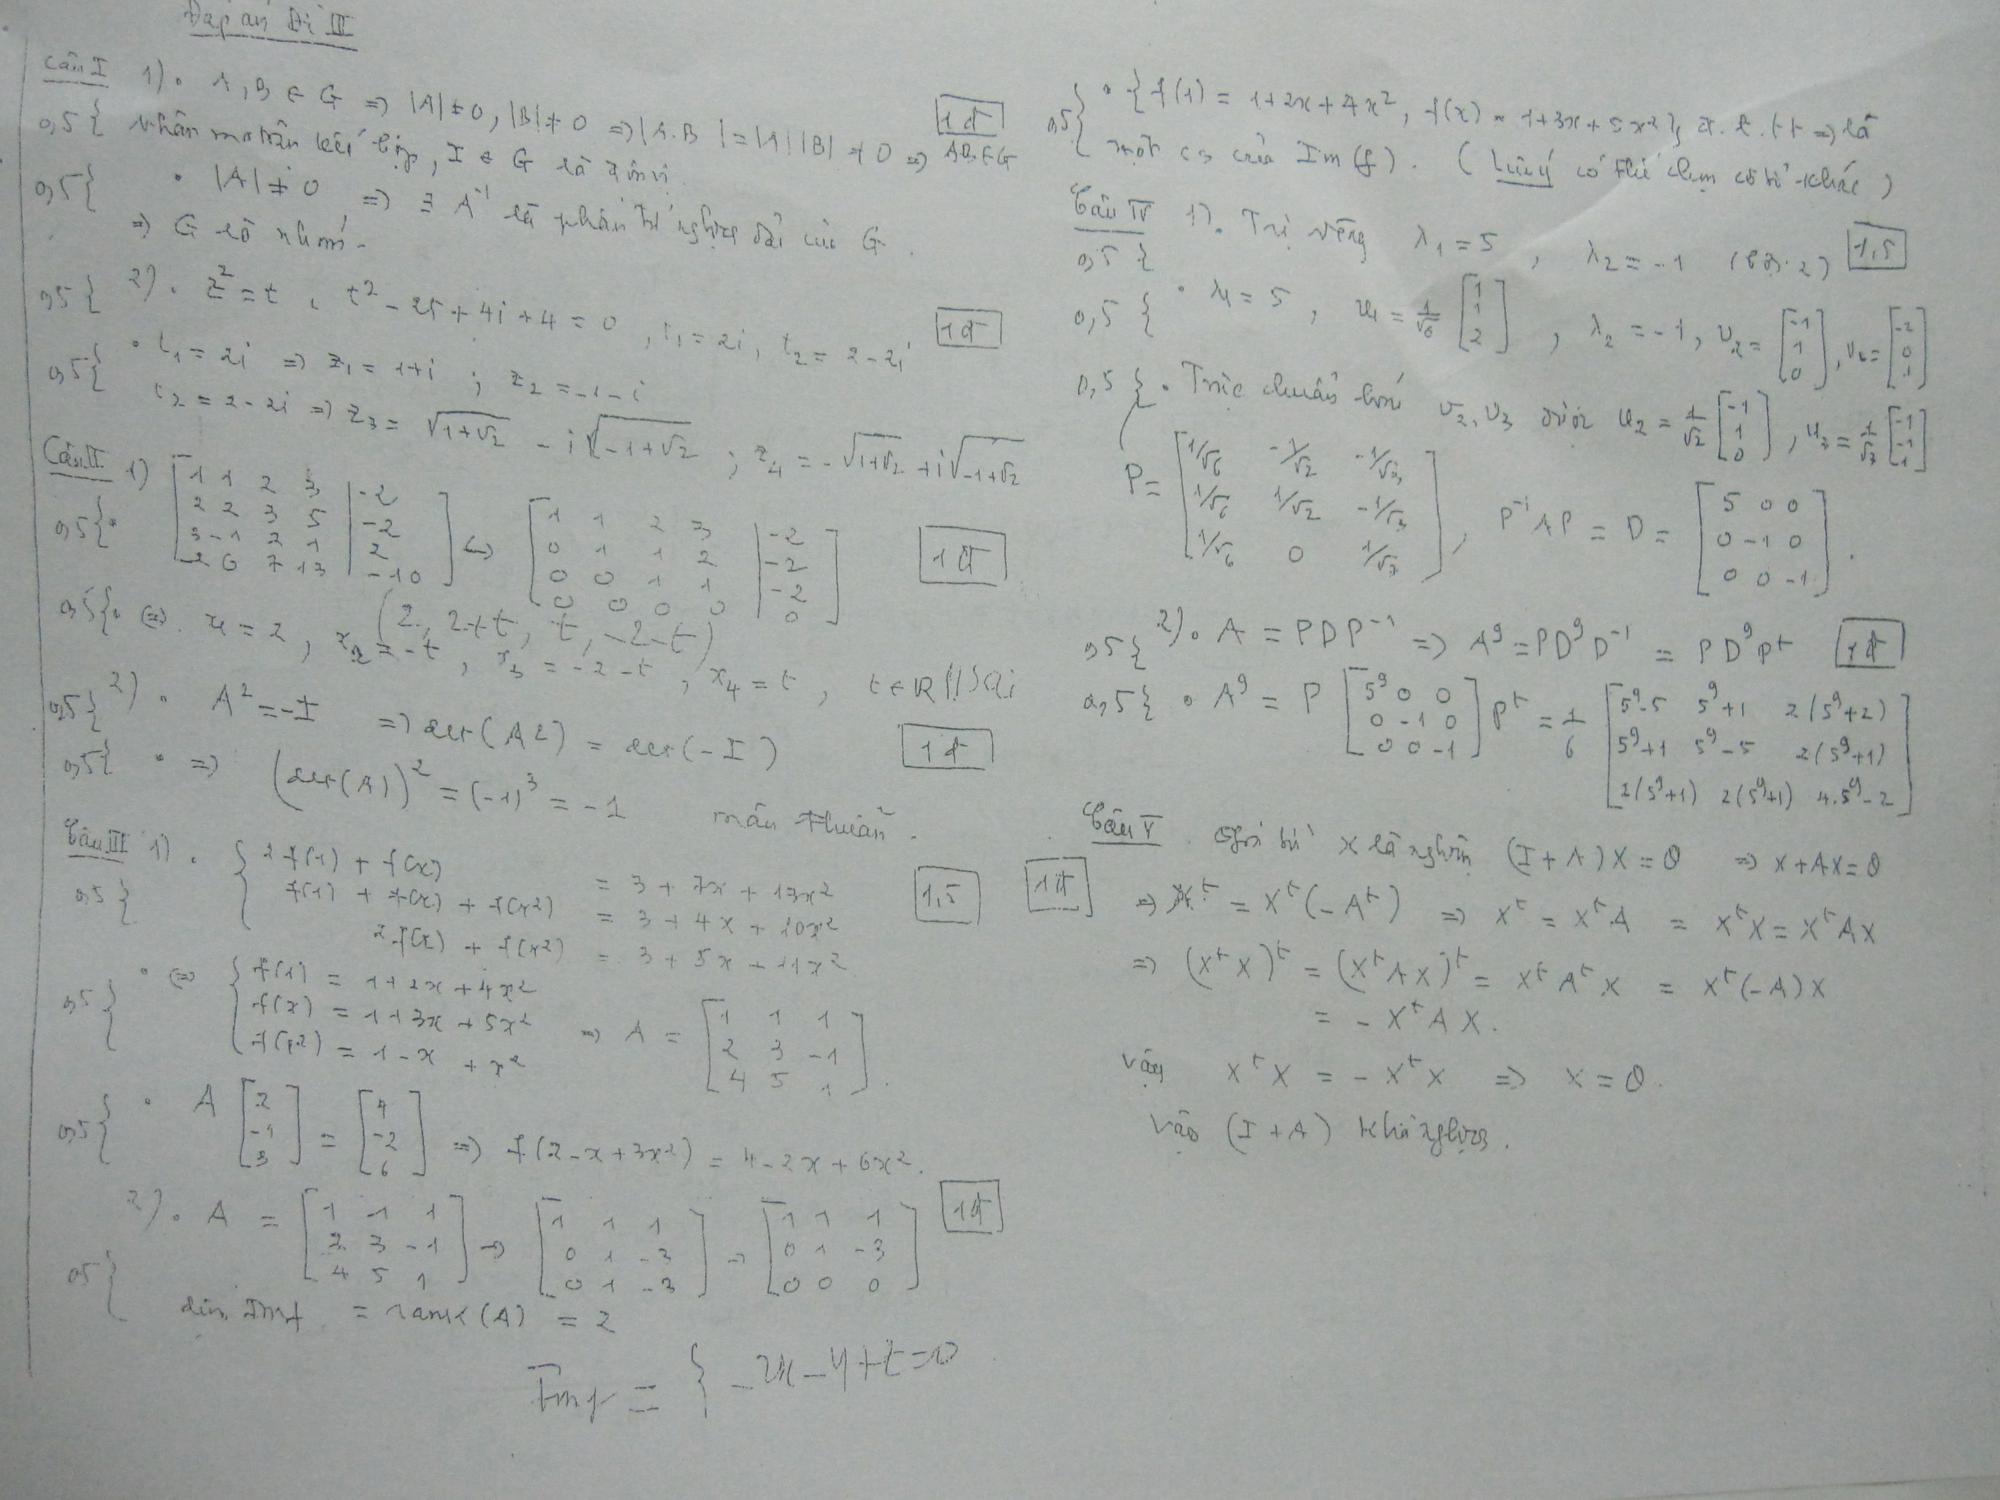 Đáp án Đề III
Câu I 1) • A, B ∈ G => |A| ≠ 0, |B| ≠ 0 => |A.B| = |A||B| ≠ 0 => AB ∈ G
1đ
0,5{ Nhân ma trận kết hợp, I ∈ G là
0,5{ • |A| ≠ 0 => ∃ A⁻¹ là phần tử nghịch đảo của G.
=> G là nhóm.
0,5{ 2) • z² = t, t² - 2t + 4i + 4 = 0, t₁ = 2i, t₂ = 2 - 2i
1đ
0,5{ • t₁ = 2i => z₁ = 1+i ; z₂ = -1-i
t₂ = 2-2i => z₃ = √(1+√2) - i√(-1+√2) ; z₄ = -√(1+√2) + i√(-1+√2)
Câu II 1) [1 1 2 3 | -2] [1 1 2 3 | -2]
0,5{• [2 2 3 5 | -2] <-> [0 1 1 2 | -2]
[3 -1 2 1 | 2] [0 0 1 1 | -2]
[-2 6 7 13 | -10] [0 0 0 0 | 0]
1đ
(2, 2+t, t, -2-t)
0,5{• <=> x₁ = 2, x₂ = -t, x₃ = -2-t, x₄ = t, t ∈ R // Sai
0,5{ 2) • A² = -I => det(A²) = det(-I)
1đ
0,5{ • => (det(A))² = (-1)³ = -1 mâu thuẫn.
Câu III 1) • { 2f(1) + f(x) = 3 + 7x + 13x²
0,5{ f(1) + f(x) + f(x²) = 3 + 4x + 10x²
1,5
2f(x) + f(x²) = 3 + 5x + 11x²
• <=> { f(1) = 1+2x+4x²
0,5{ f(x) = 1+3x+5x² => A = [1 1 1; 2 3 -1; 4 5 1].
f(x²) = 1-x+x²
0,5{ • A [2; -1; 3] = [4; -2; 6] => f(2-x+3x²) = 4-2x+6x².
2) • A = [1 1 1; 2 3 -1; 4 5 1] -> [1 1 1; 0 1 -3; 0 1 -3] -> [1 1 1; 0 1 -3; 0 0 0]
1đ
0,5{ dim Imf = rank(A) = 2
Imf = { -2x - y + t = 0
0,5{ • {f(1) = 1+2x+4x², f(x) = 1+3x+5x²}, đ.l.tt => là
một cs của Im(f). (Lưu ý có thể chọn cơ sở khác)
Câu IV 1) • Trị riêng λ₁ = 5, λ₂ = -1 (bội 2)
1,5
0,5{
0,5{ • λ₁ = 5, u₁ = 1/√6 [1; 1; 2], λ₂ = -1, v₂ = [-1; 1; 0], v₃ = [-2; 0; 1]
0,5{ • Trực chuẩn hoá v₂, v₃ được u₂ = 1/√2 [-1; 1; 0], u₃ = 1/√3 [-1; -1; 1]
P = [1/√6 -1/√2 -1/√3; 1/√6 1/√2 -1/√3; 1/√6 0 1/√3], P⁻¹AP = D = [5 0 0; 0 -1 0; 0 0 -1].
0,5{ 2) • A = PDP⁻¹ => A⁹ = PD⁹D⁻¹ = PD⁹Pᵗ
1đ
0,5{ • A⁹ = P [5⁹ 0 0; 0 -1 0; 0 0 -1] Pᵗ = 1/6 [5⁹-5 5⁹+1 2(5⁹+2); 5⁹+1 5⁹-5 2(5⁹+1); 2(5⁹+1) 2(5⁹+1) 4.5⁹-2]
Câu V. Giả sử X là nghiệm (I+A)X = 0 => X+AX = 0
1đ
=> Xᵗ = Xᵗ(-Aᵗ) => Xᵗ = XᵗA = XᵗX = XᵗAX
=> (XᵗX)ᵗ = (XᵗAX)ᵗ = XᵗAᵗX = Xᵗ(-A)X
= -XᵗAX.
Vậy XᵗX = -XᵗX => X = 0.
Vậy (I+A) khả nghịch.